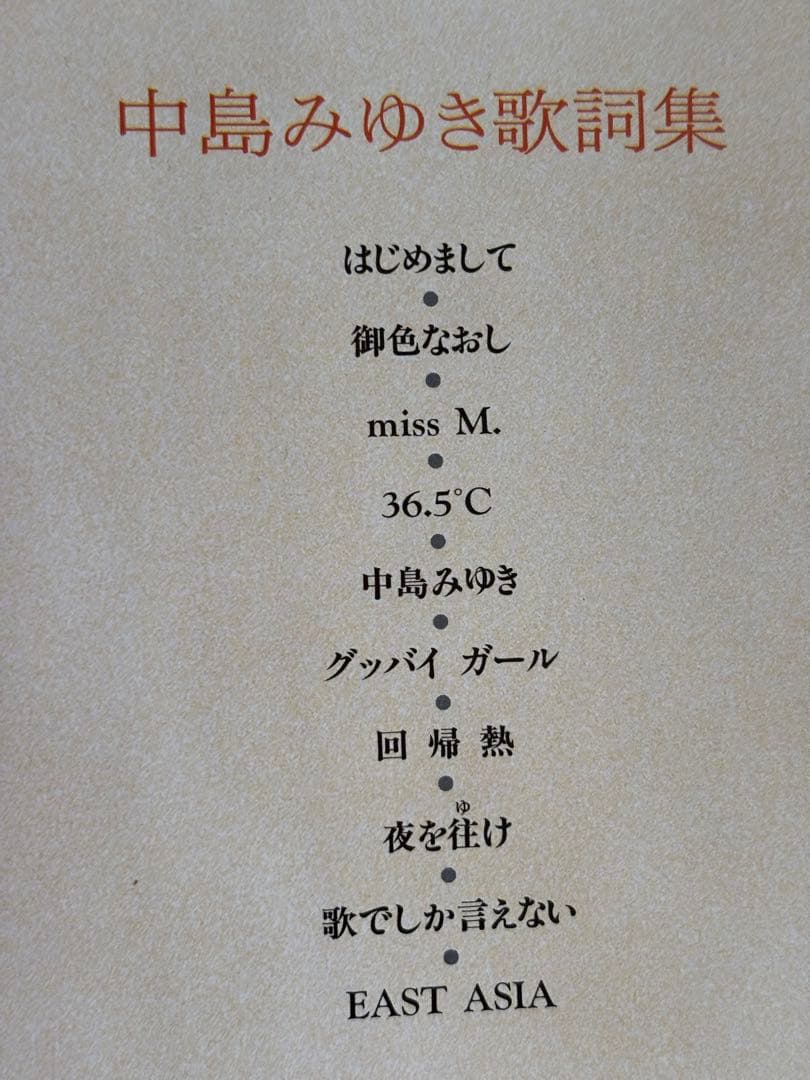 中島みゆき歌詞集
はじめまして
御色なおし
miss M.
36.5℃
中島みゆき
グッバイ ガール
回 帰 熱
ゆ
夜を往け
歌でしか言えない
EAST ASIA